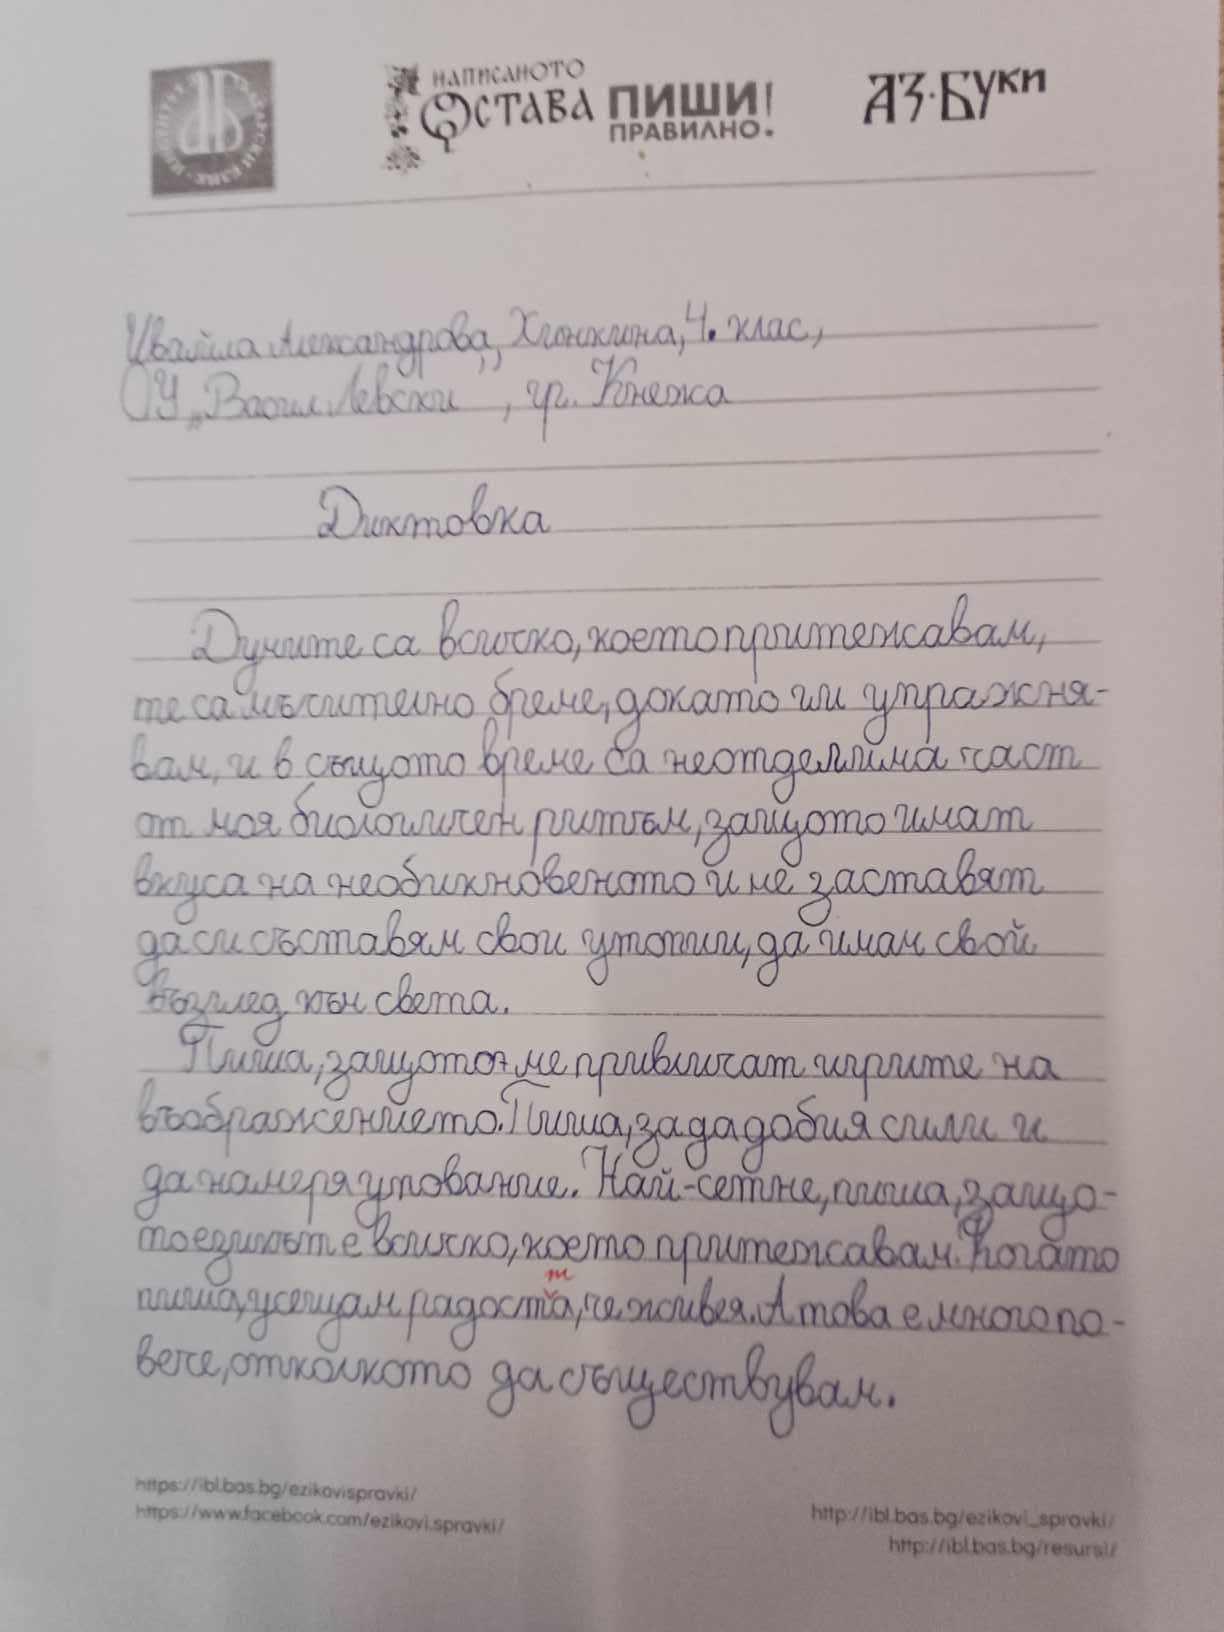 ИНСТИТУТ ЗА БЪЛГАРСКИ ЕЗИК
НАПИСАНОТО
ОСТАВА ПИШИ!
ПРАВИЛНО.
АЗ·БУКИ
Ивайла Александрова, Хлонклина, 4. клас,
ОУ „Васил Левски", гр. Кнежа
Диктовка
Думите са всичко, което притежавам,
те са мъчително бреме, докато ги упражня-
вам, и в същото време са неотделима част
от моя биологичен ритъм, защото имат
вкуса на необикновеното и ме заставят
да си съставям свои утопии, да имам свой
възглед към света.
Пиша, защото ме привличат игрите на
въображението. Пиша, за да добия сили и
да намеря упование. Най-сетне, пиша, защо-
то езикът е всичко, което притежавам. Когато
пиша, усещам радостта, че живея. А това е много по-
вече, отколкото да съществувам.
https://ibl.bas.bg/ezikovispravki/
https://www.facebook.com/ezikovi.spravki/
http://ibl.bas.bg/ezikovi_spravki/
http://ibl.bas.bg/resursi/